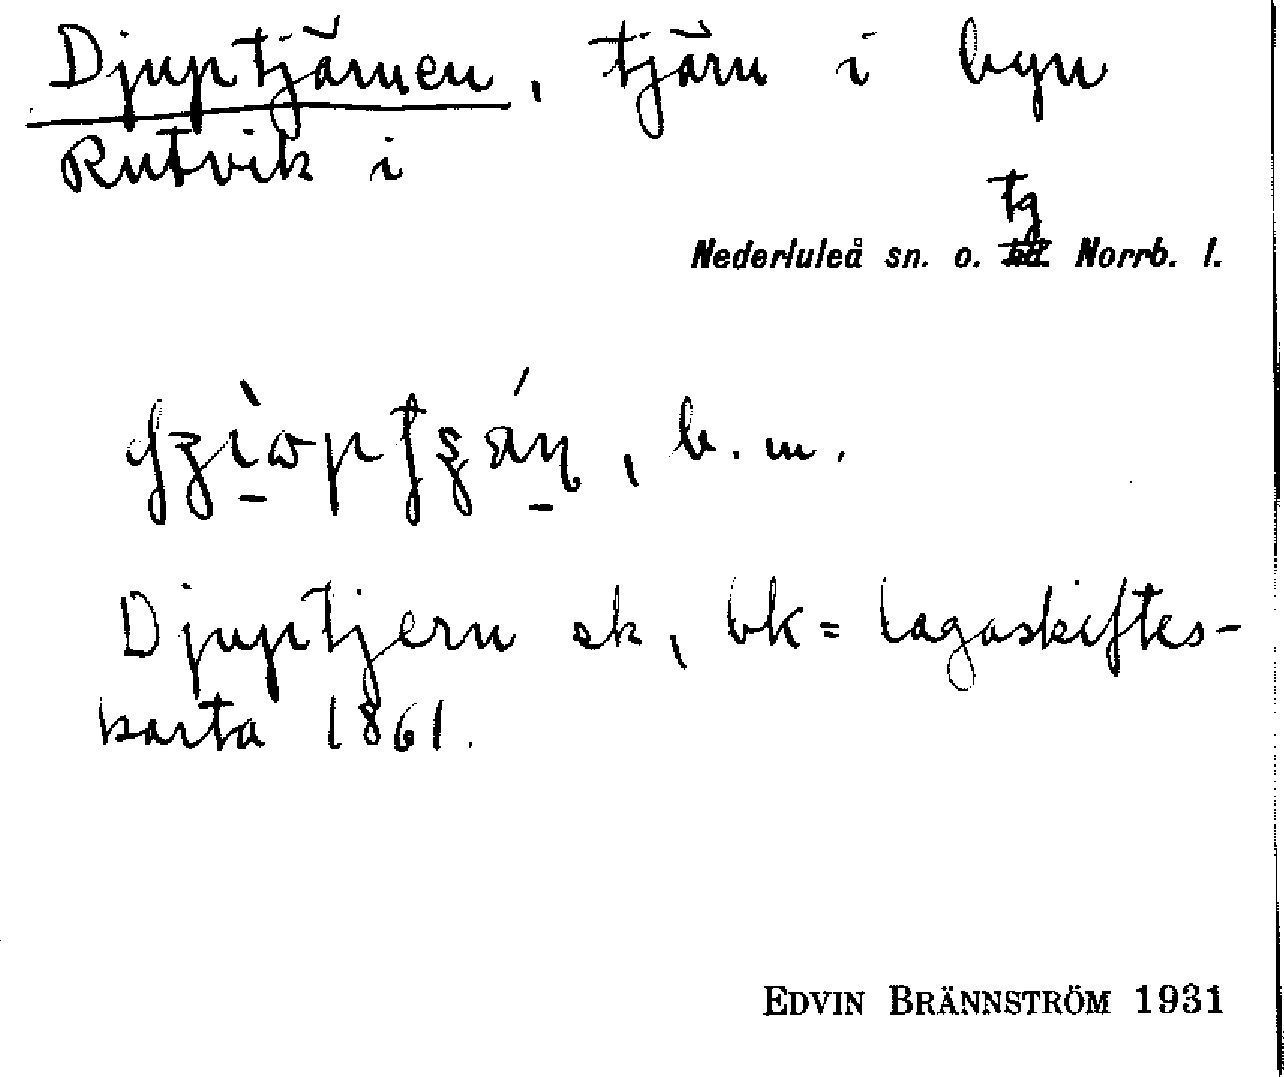 Djuptjärnen, tjärn i byn
Rutvik i
tg
Nederluleå sn. o. hd. Norrb. l.
, b. m.
Djuptjern sk, bk = lagaskiftes-
karta 1861.
EDVIN BRÄNNSTRÖM 1931